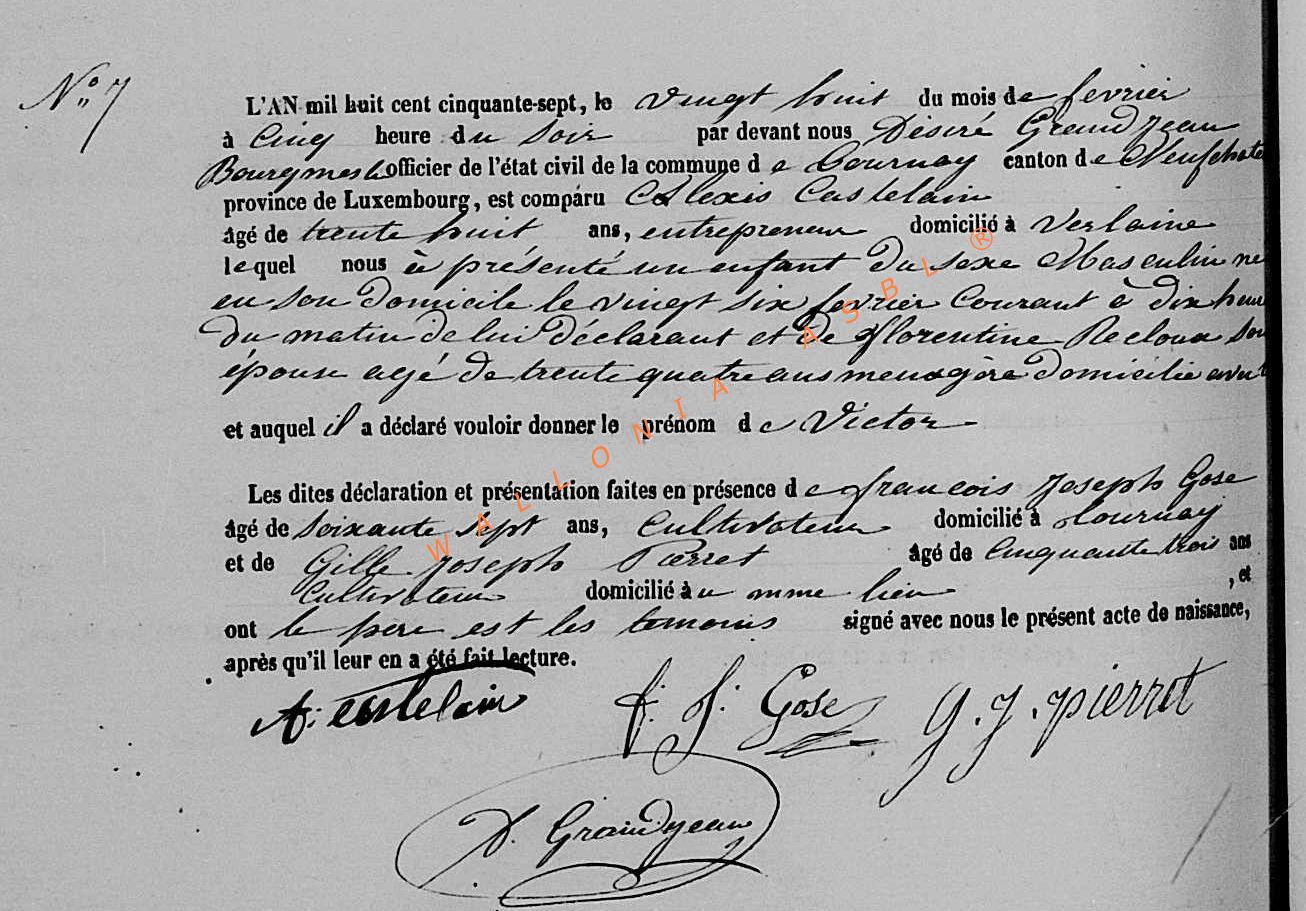 N° 7
L'AN mil huit cent cinquante-sept, le vingt huit du mois de fevrier
à Cinq heure du soir par devant nous Désiré Grandjean
Bourgmest officier de l'état civil de la commune de Tournay canton de Neufchate
province de Luxembourg, est comparu Alexis Castelain
âgé de trente huit ans, entrepreneur domicilié à Verlaine
lequel nous à présenté un enfant du sexe Masculin ne
en son domicile le vingt six fevrier Courant à dix heur
du matin de lui déclarant et de florentine Recloux son
épouse agé de trente quatre ans menagère domicilié avec
et auquel il a déclaré vouloir donner le prénom de Victor
Les dites déclaration et présentation faites en présence de francois Joseph Gose
âgé de soixante sept ans, Cultivateur domicilié à tournay
et de Gille Joseph Pierret âgé de Cinquante trois ans
Cultivateur domicilié à u mme lieu , et
ont le pere est les temoins signé avec nous le présent acte de naissance,
après qu'il leur en a été fait lecture.
A: castelain F: J: Gose G. J. pierret
D. Grandjean
WALLONIA ASBL ®